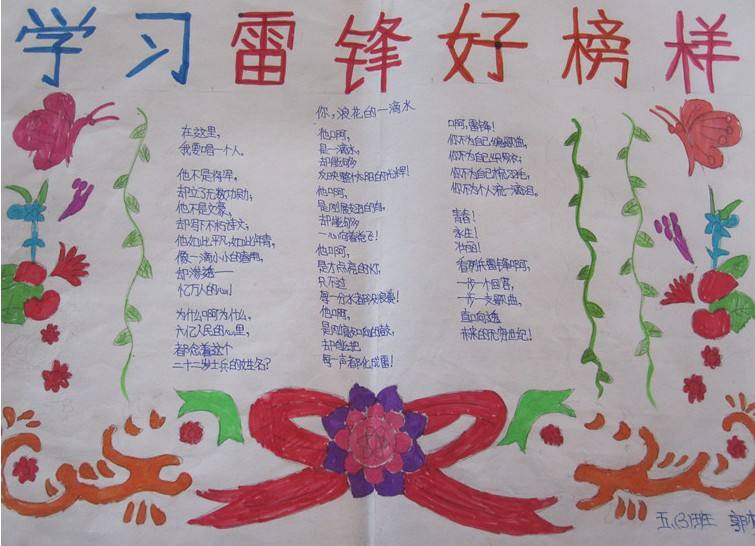 学习雷锋好榜样
你,浪花的一滴水
在这里,
我要唱一个人。
他不是将军,
却立了无数功勋;
他不是文豪,
却写下不朽诗文;
他如此平凡,如此年青,
像一滴小小的春雨,
却渗透——
亿万人的心!
为什么啊为什么,
六亿人民的心里,
都念着这个
二十二岁士兵的姓名?
他啊,
是一滴水,
却能够
反映整个太阳的光辉!
他啊,
是刚展翅的鸟,
却能够
一心向着党飞!
他啊,
是才点亮的灯,
只不过
每一分光都没浪费!
他啊,
是刚敲响的鼓,
却能把
每一声都化成雷!
啊,雷锋!
你不为自己编歌曲,
你不为自己织罗衣;
你不为自己梳羽毛,
你不为个人流一滴泪。
青春!
永生!
壮丽!
看明朵雷锋啊啊,
一步一个回音,
一步一支歌曲,
直向透
未来的无穷世纪!
五、(3)班